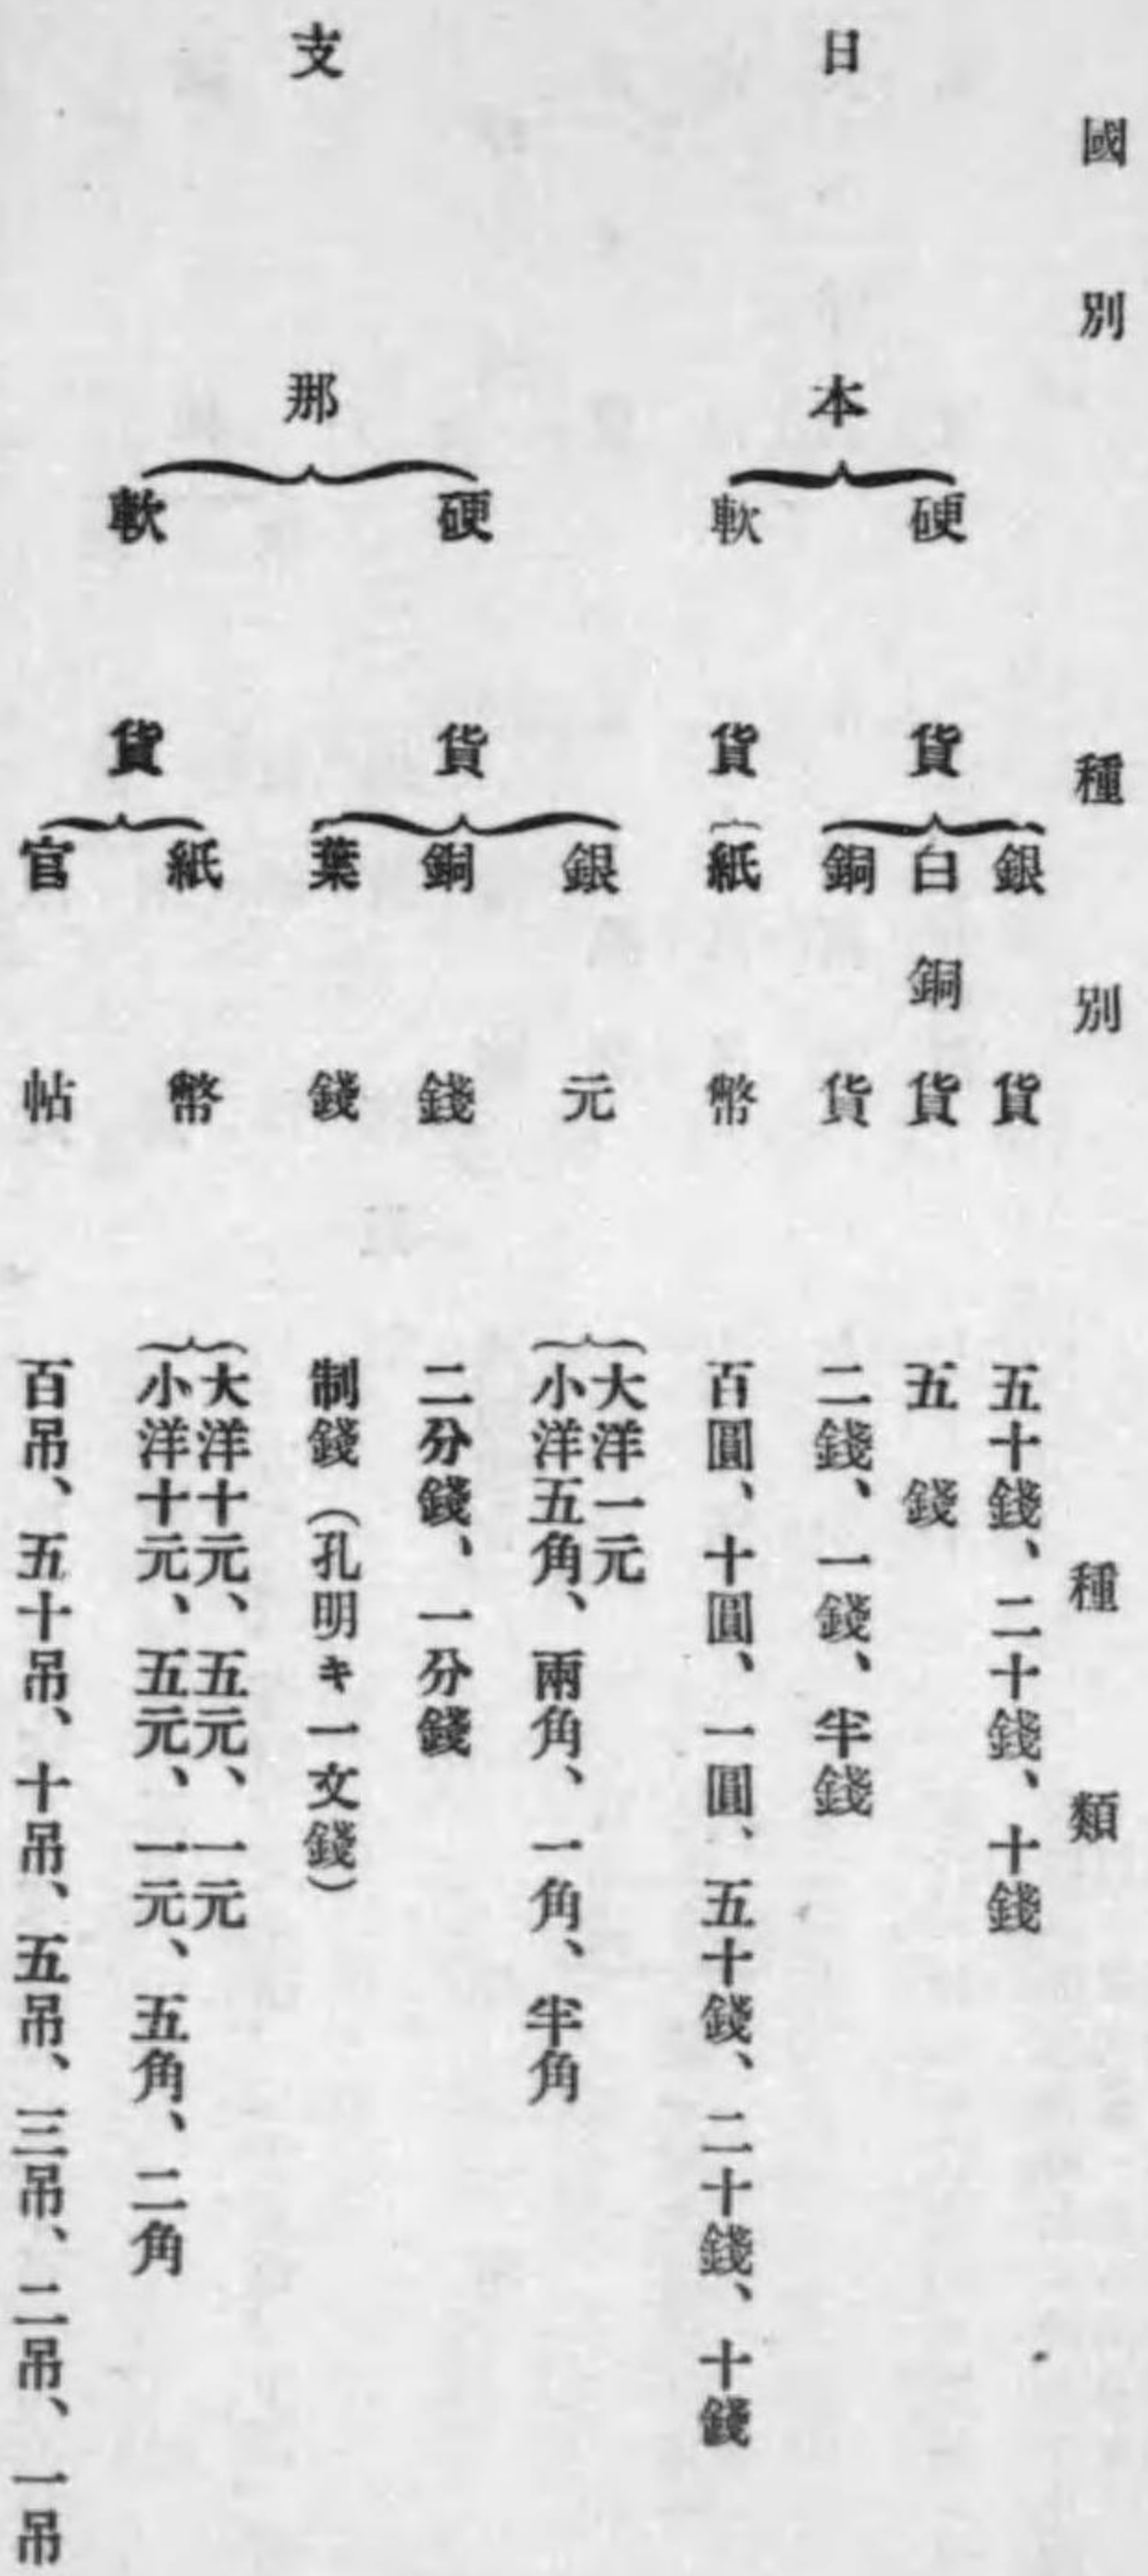 國別 種別 種類
日本
硬貨
銀貨 五十錢、二十錢、十錢
白銅貨 五錢
銅貨 二錢、一錢、半錢
軟貨
紙幣 百圓、十圓、一圓、五十錢、二十錢、十錢
支那
硬貨
銀元
大洋一元
小洋五角、兩角、一角、半角
銅錢 二分錢、一分錢
葉錢 制錢(孔明キ一文錢)
軟貨
紙幣
大洋十元、五元、一元
小洋十元、五元、一元、五角、二角
官帖 百吊、五十吊、十吊、五吊、三吊、二吊、一吊